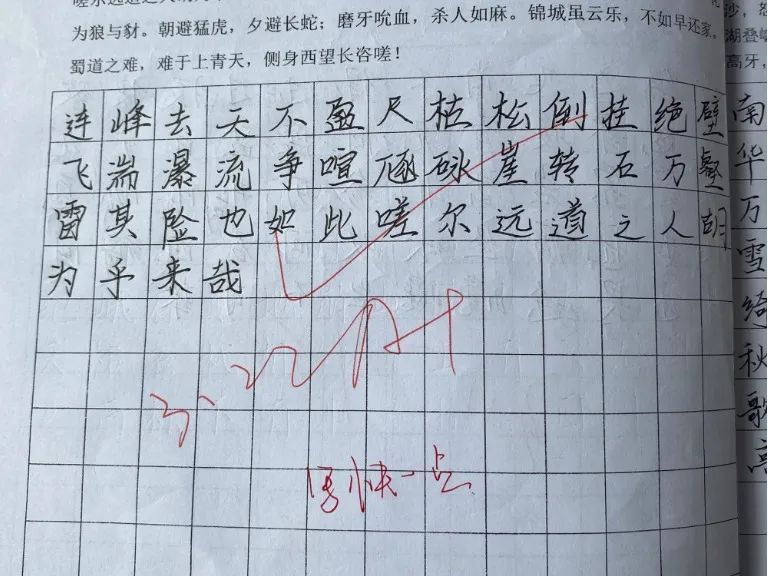 为狼与豺。朝避猛虎，夕避长蛇；磨牙吮血，杀人如麻。锦城虽云乐，不如早还家。
蜀道之难，难于上青天，侧身西望长咨嗟！
连峰去天不盈尺枯松倒挂绝壁
飞湍瀑流争喧豗砯崖转石万壑
雷其险也如此嗟尔远道之人胡
为乎来哉
A+
写快一点
高牙，
南
华
万
雪
绮
秋
歌
高